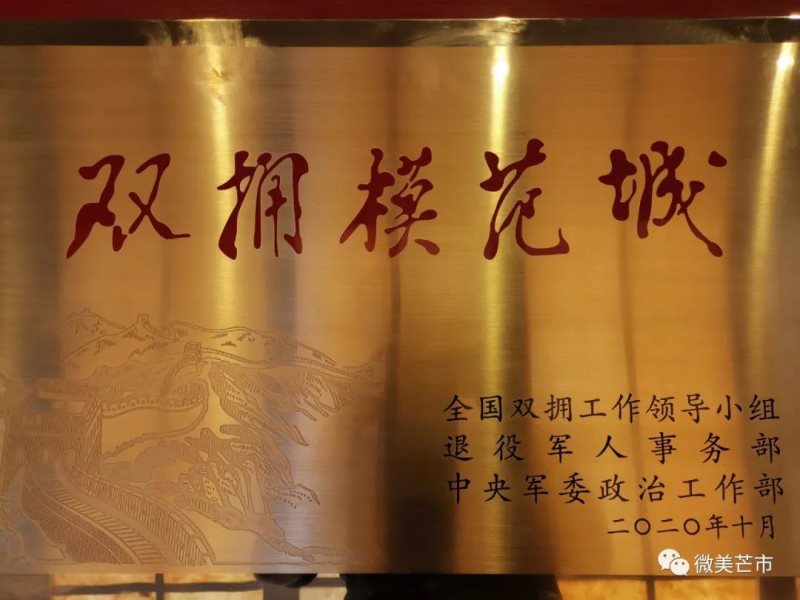 双拥模范城
全国双拥工作领导小组
退役军人事务部
中央军委政治工作部
二〇二〇年十月
微美芒市